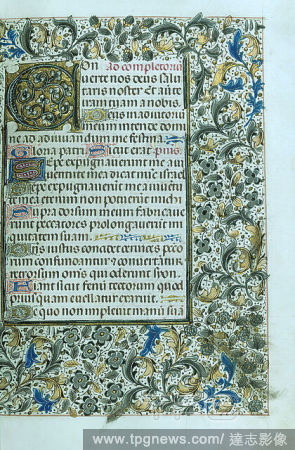 Ad completorium
Converte nos deus salu
taris noster Et averte
iram tuam a nobis.
Deus in adiutorium
meum intende domi
ne ad adiuvandum me festina.
Gloria patri Sicut erat ps
Sepe expugnaverunt me a iu
ventute mea dicat nunc israel
Sepe expugnaverunt me a iuventu
te mea etenim non potuerunt michi
Supra dorsum meum fabricave
runt peccatores prolongaverunt ini
quitatem suam
Dominus iustus concidet cervices pecca
confundantur et convertantur
retrorsum omnes qui oderunt syon
Fiant sicut fenum tectorum quod
priusquam evellatur exaruit
De quo non implevit manum suam
www.tpgnews.com / 達志影像